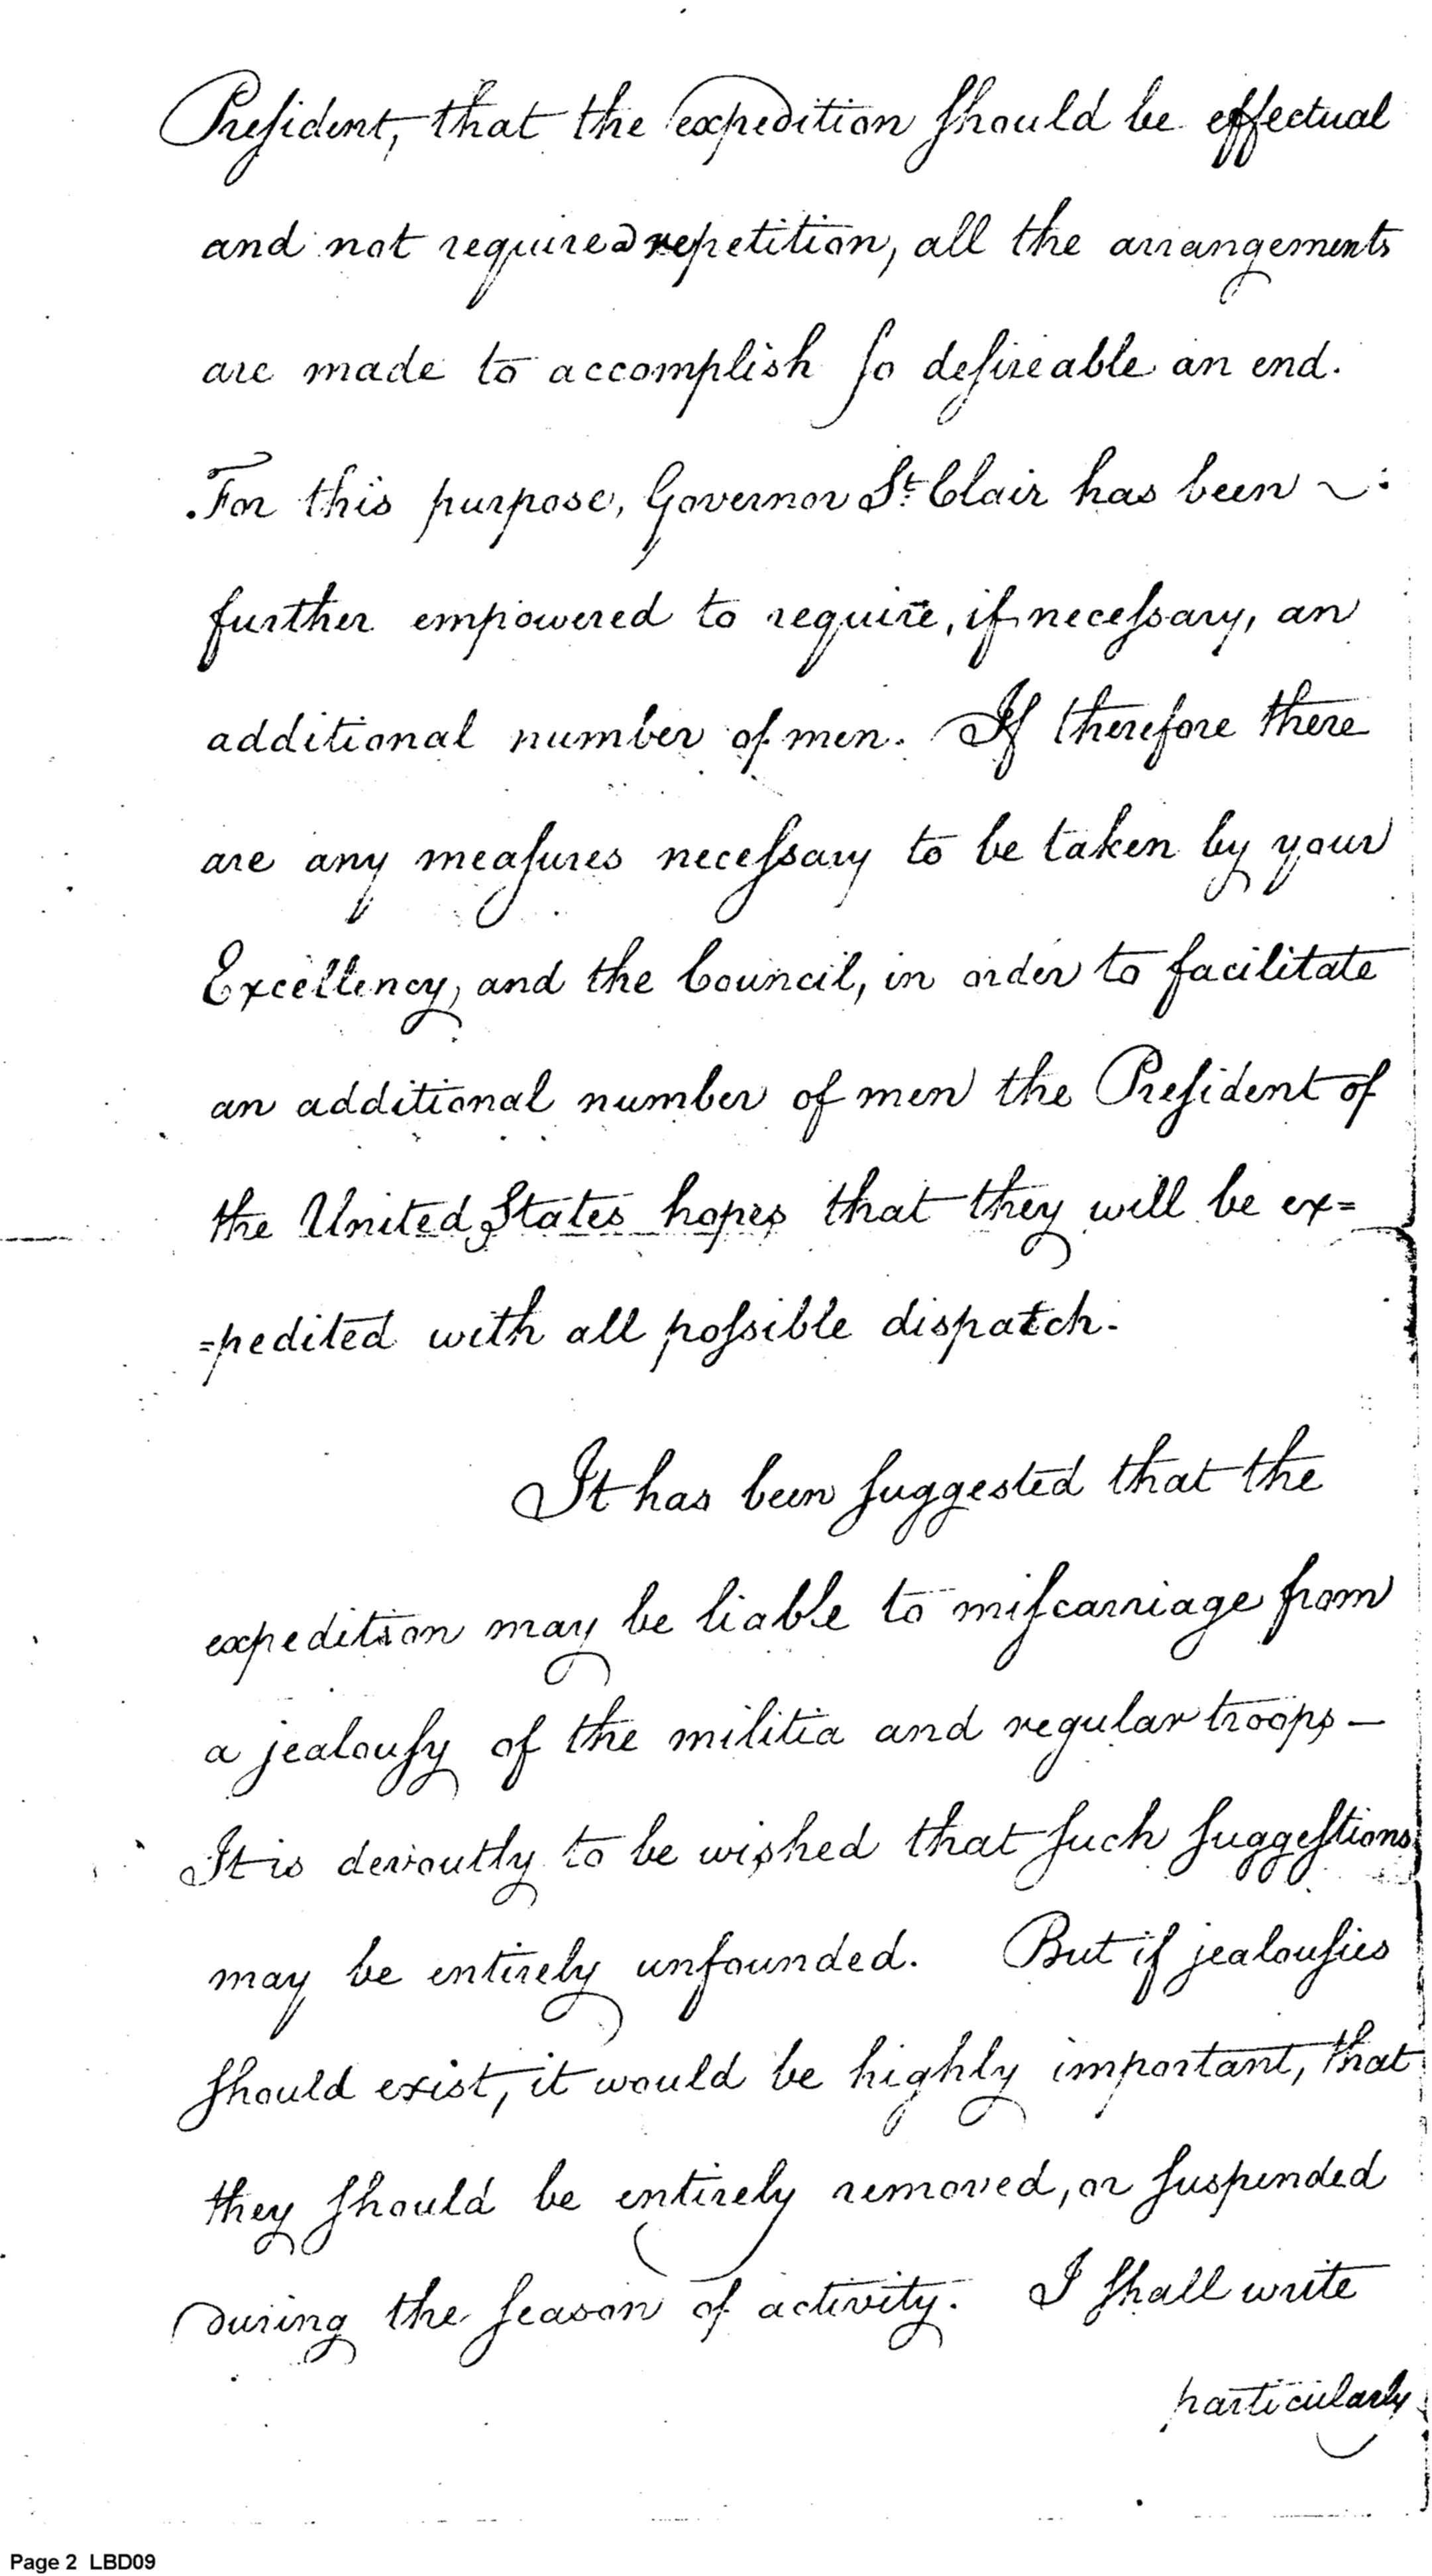 President, that the expedition should be effectual
and not require a repetition, all the arrangements
are made to accomplish so desireable an end.
For this purpose, Governor St. Clair has been
further empowered to require, if necessary, an
additional number of men. If therefore there
are any measures necessary to be taken by your
Excellency, and the Council, in order to facilitate
an additional number of men the President of
the United States hopes that they will be ex=
=pedited with all possible dispatch.
It has been suggested that the
expedition may be liable to miscarriage from
a jealousy of the militia and regular troops —
It is devoutly to be wished that such suggestions
may be entirely unfounded. But if jealousies
should exist, it would be highly important, that
they should be entirely removed, or suspended
during the season of activity. I shall write
particularly
Page 2 LBD09